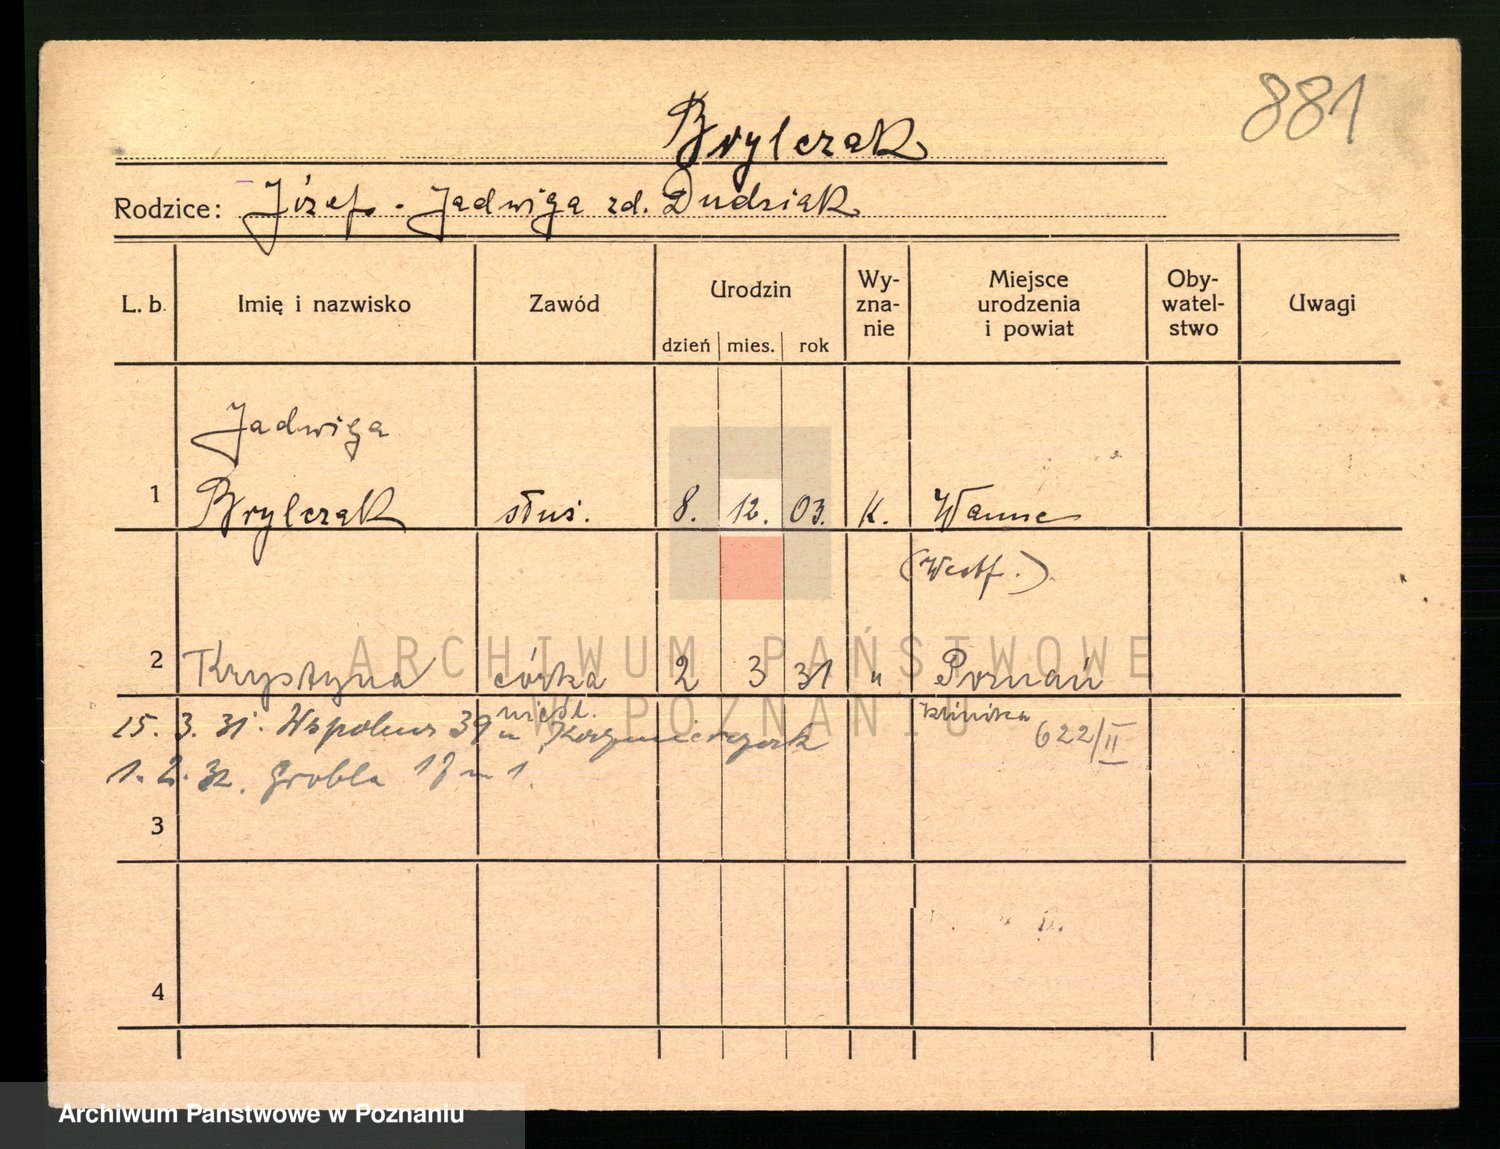 881
Brylczak
Rodzice: Józef - Jadwiga zd. Dudziak
L. b. Imię i nazwisko Zawód Urodzin dzień mies. rok Wy-zna-nie Miejsce urodzenia i powiat Oby-watel-stwo Uwagi
Jadwiga
1 Brylczak służ. 8. 12. 03. K. Wanne
(Westf.)
2 Krystyna córka 2 3 31 " Poznań
nieśl. klinika
15. 3. 31. Wspólna 39 u Kaczmierczak 622/II
1. 2. 32. Grobla 17 m 1.
3
4
ARCHIWUM PAŃSTWOWE
W POZNANIU
Archiwum Państwowe w Poznaniu